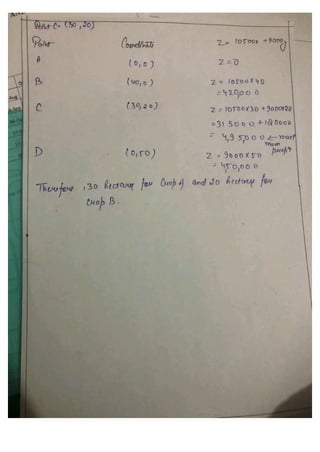 Point C = (30, 20)
Point Coordinate Z = 10500x + 9000y
A (0,0) Z = 0
B (40,0) Z = 10500×40
= 420,000
C (30,20) Z = 10500×30 + 9000×20
= 315000 + 180000
= 4,95,000 ← maxi
mum
profit
D (0,50) Z = 9000×50
= 450,000
Therefore, 30 hectares for crop A and 20 hectares for
crop B.